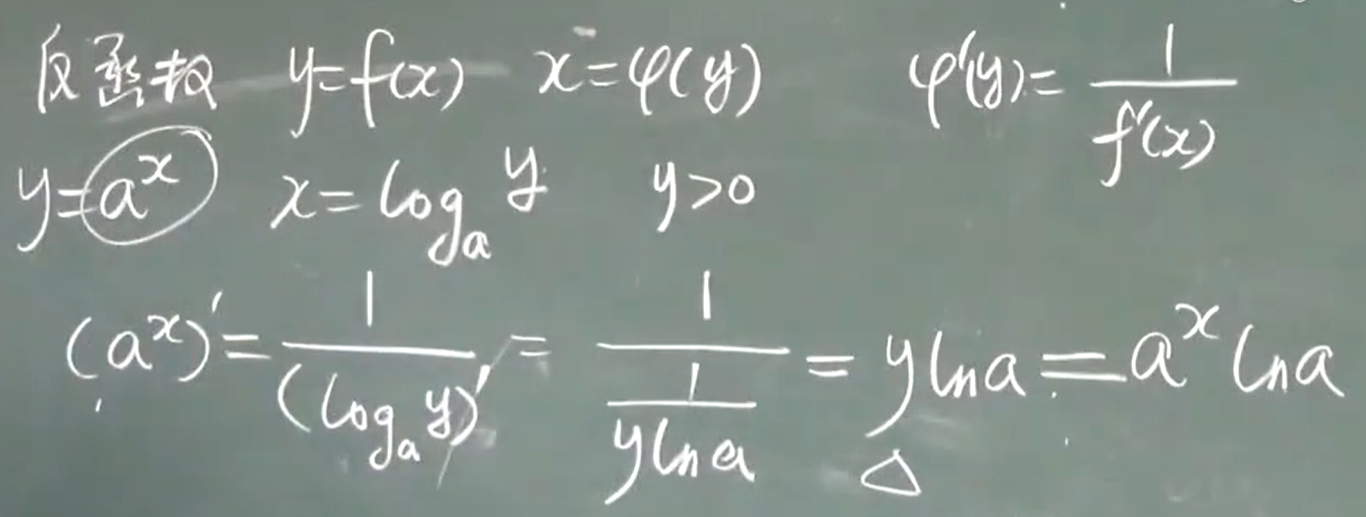 反函数 y=f(x) x=φ(y) φ'(y)=1/f'(x)
y=a^x x=log_a y y>0
(a^x)'=1/(log_a y)'=1/(1/(y ln a))=y ln a=a^x ln a